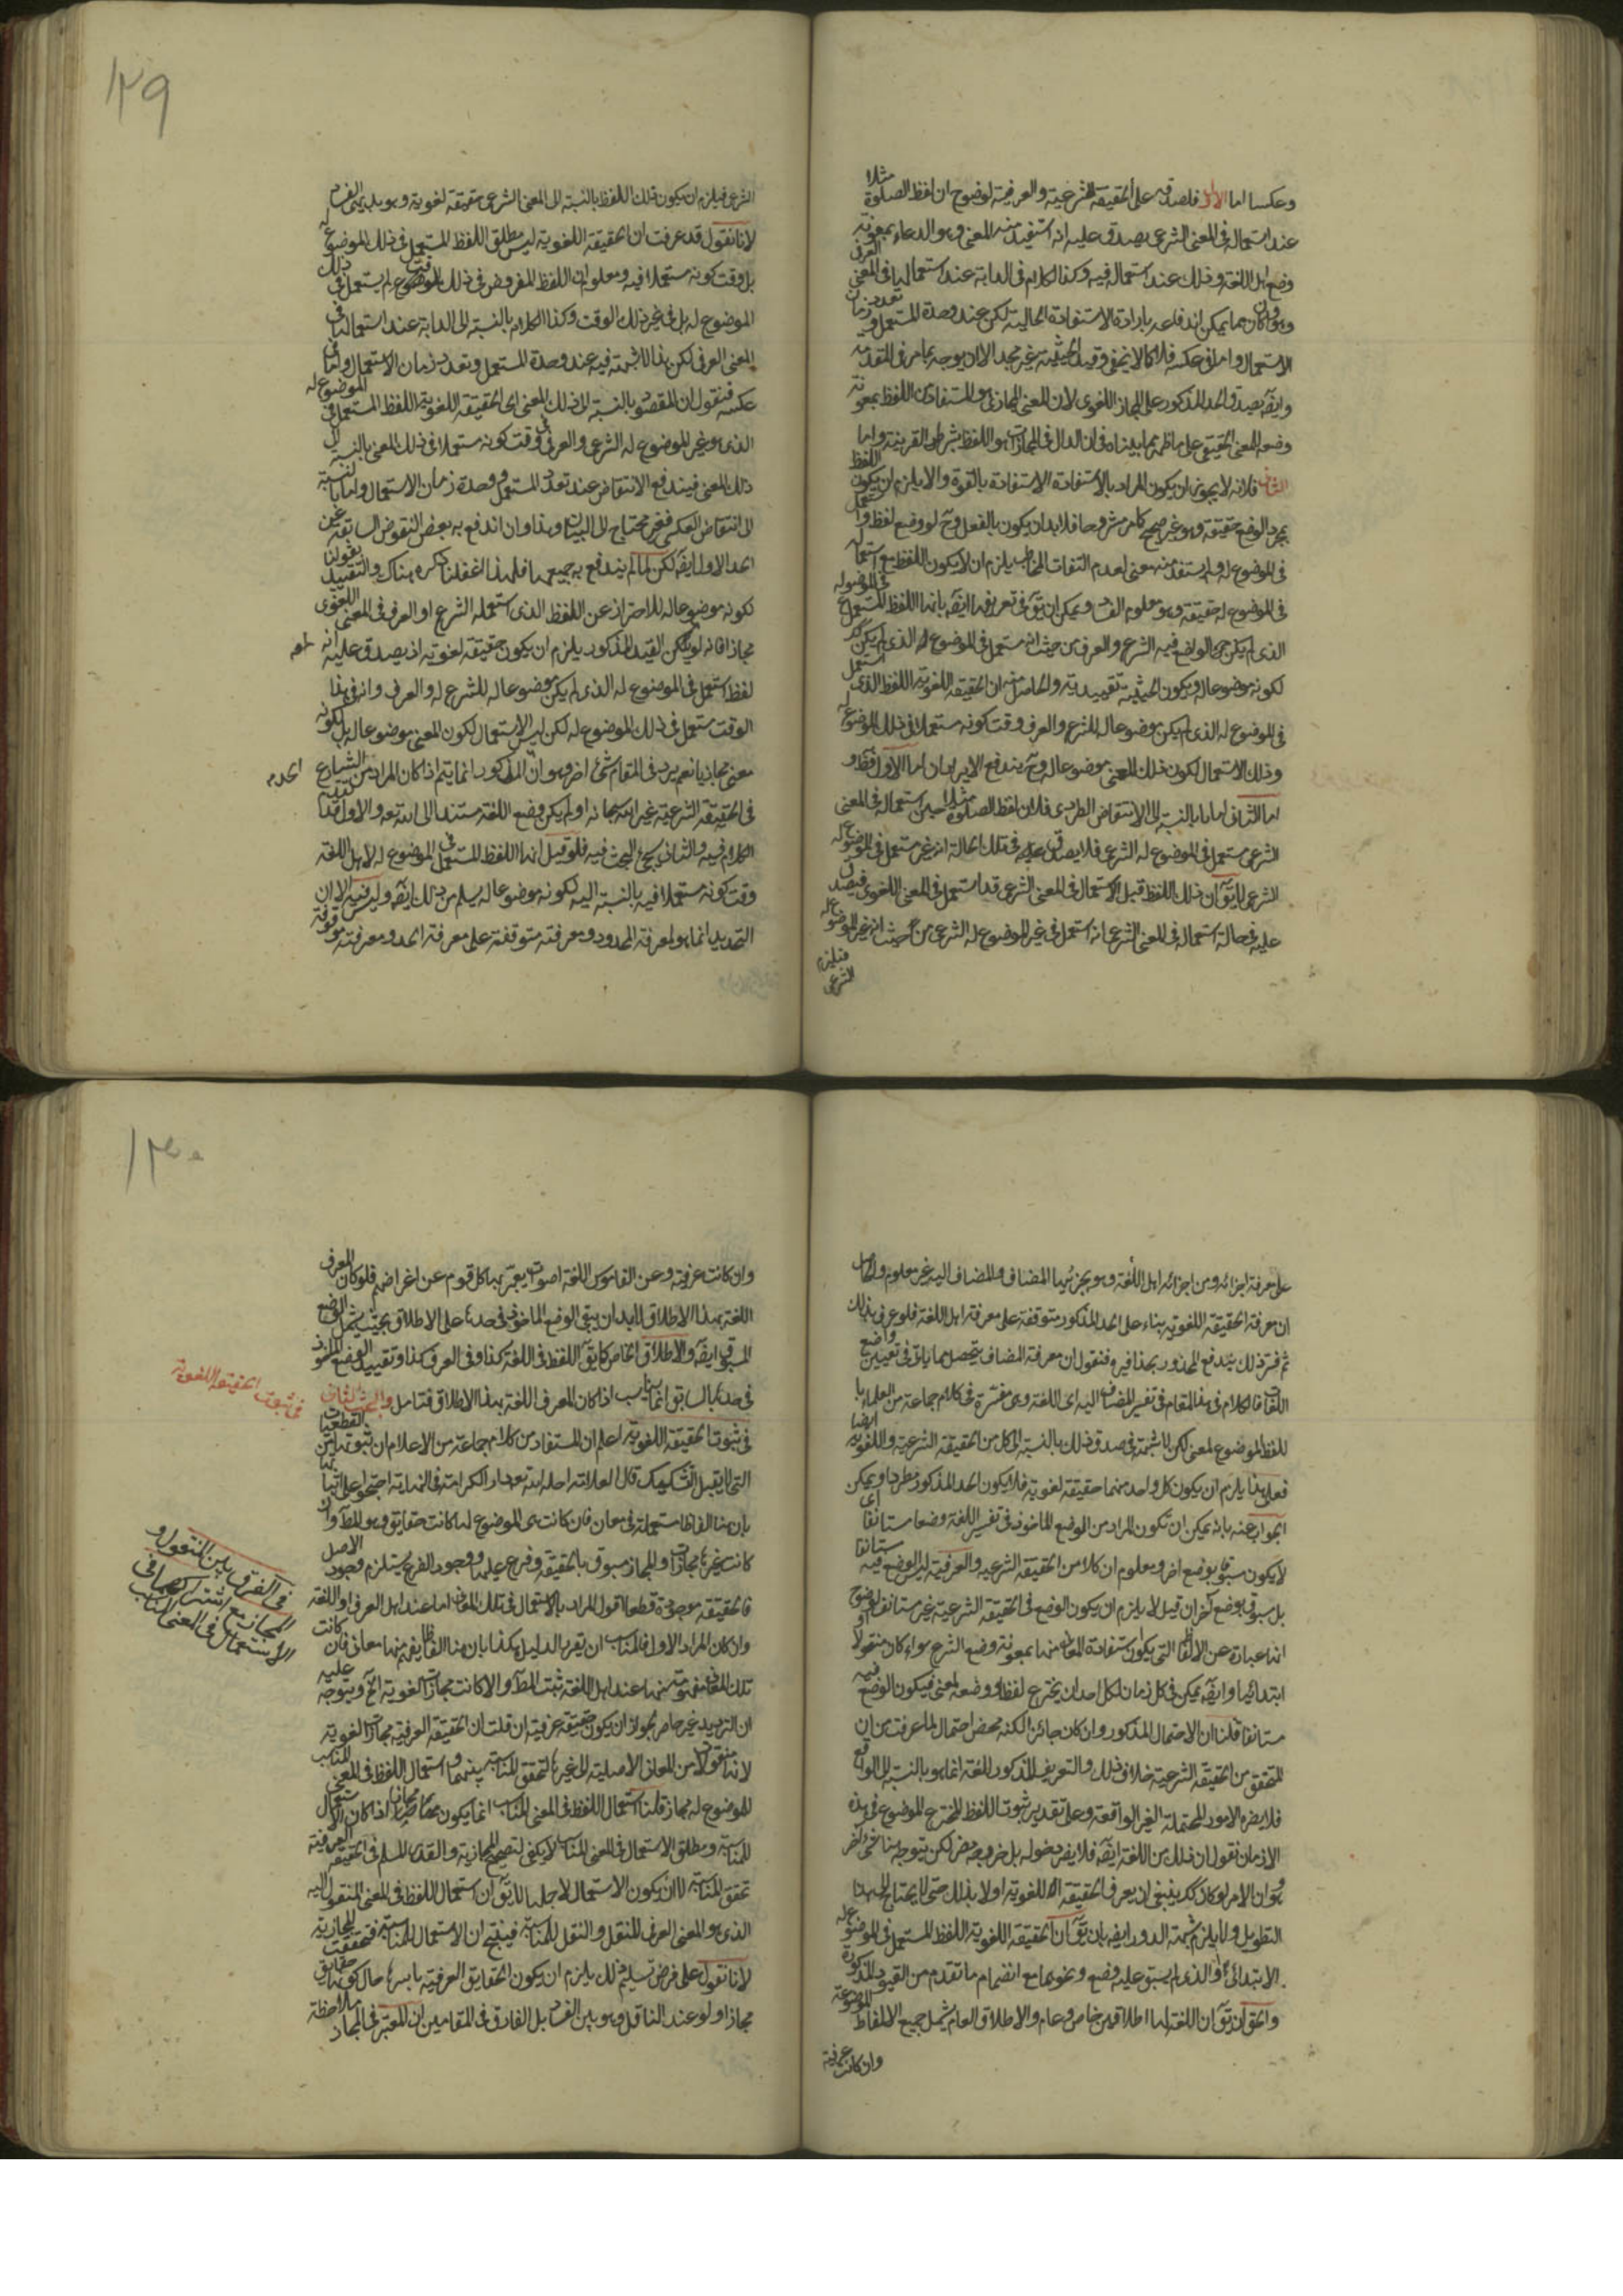 وعكسا اما الاول فلصدقه على الحقيقة الشرعية والعرفية لوضوح ان لفظ الصلوة مثلا
عند استعماله في المعنى الشرعي يصدق عليه انه استفيد منه المعنى وهو الدعاء بمعونة
وضع اهل اللغة وذلك عند استعماله فيه وكذا الكلام في الدابة عند استعمالها في المعنى العرفي
وهو وان كان مما يمكن اندفاعه بارادة الاستفادة الحالية لكن عند وحدة المستعمل وتعدد زمان
الاستعمال واما في عكسه فلما لا يخفى وقيد الحيثية غير مجد الا ان يوجه بما مر في المتقدمة
وايضا يصدق الحد المذكور على المجاز اللغوي لان المعنى المجازي هو المستفاد من اللفظ بمعونة
وضعه للمعنى الحقيقي على ما ظهر مما بيناه في ان الدال في المجازات هو اللفظ بشرط القرينة واما
الثاني فلانه لا يجوز ان يكون المراد بالاستفادة الاستفادة بالقوة والا يلزم ان يكون اللفظ
بمجرد الوضع حقيقة وهو غير صحيح كما مر مشروحا فلا بد ان يكون بالفعل وح لو وضع لفظ واستعمل
في الموضوع له ولم يستفد منه معنى لعدم التفات المخاطب يلزم ان لا يكون اللفظ مع استعماله
في الموضوع له حقيقة وهو معلوم الفساد ويمكن ان يق في تعريفها ايضا بانها اللفظ المستعمل في الموضوع له
الذي لم يكن الواضع فيه الشرع والعرف من حيث انه مستعمل في الموضوع له الذي لم يكن كك
لكونه موضوعا له ويكون الحيثية تقييدية والحاصل منه ان الحقيقة اللغوية اللفظ الذي استعمل
في الموضوع له الذي لم يكن موضوعا له للشرع والعرف وقت كونه مستعملا في ذلك الموضوع له
وذلك الاستعمال لكون ذلك المعنى موضوعا له وح يندفع الايرادان اما الاول فظ و
اما الثاني اما بالنسبة الى الانتقاض الطردي فلان لفظ الصلوة مثلا حين استعماله في المعنى
الشرعي مستعمل في الموضوع له الشرعي فلا يصدق عليه في تلك الحالة انه غير مستعمل في الموضوع له
الشرعي لا يق ان ذلك اللفظ قبل الاستعمال في المعنى الشرعي قد استعمل في المعنى اللغوي فيصدق
عليه في حالة استعماله في المعنى الشرعي انه استعمل في غير الموضوع له الشرعي من حيث انه غير الموضوع له
فيلزم
الشرعي
١٢٩
الشرعي فيلزم ان يكون ذلك اللفظ بالنسبة الى المعنى الشرعي حقيقة لغوية وهو بديهي الفساد
لانا نقول قد عرفت ان الحقيقة اللغوية ليس مطلق اللفظ المستعمل في ذلك الموضوع له
بل وقت كونه مستعملا فيه ومعلوم ان اللفظ المفروض في ذلك الوقت لم يستعمل في ذلك
الموضوع له بل في غير ذلك الوقت وكذا الكلام بالنسبة الى الدابة عند استعمالها في
المعنى العرفي لكن هذا لا شبهة فيه عند وحدة المستعمل وتعدد زمان الاستعمال واما في
عكسه فنقول ان المقصود بالنسبة الى ذلك المعنى اي الحقيقة اللغوية اللفظ المستعمل في الموضوع له
الذي هو غير الموضوع له الشرعي والعرفي في وقت كونه مستعملا في ذلك المعنى بالنسبة الى
ذلك المعنى فيندفع الانتقاض عند تعدد المستعمل ووحدة زمان الاستعمال واما بالنسبة
الى انتقاض العكس فغير محتاج الى البيان وهذا وان اندفع به بعض النقوض السابقة عن
الحد الاول ايضا لكن لما لم يندفع به جميعها فلهذا اغفلنا ذكره هناك والتقييد بقولنا
لكونه موضوعا له للاحتراز عن اللفظ الذي استعمله الشرع او العرف في المعنى اللغوي
مجازا فانه لو لم يكن القيد المذكور يلزم ان يكون حقيقة لغوية اذ يصدق عليه انه
لفظ استعمل في الموضوع له الذي لم يكن موضوعا له للشرع له والعرف وانه في هذا
الوقت مستعمل في ذلك الموضوع له لكن ليس الاستعمال لكون المعنى موضوعا له بل لكونه
معنى مجازيا نعم يرد في المقام شئ اخر وهو ان المذكور انما يتم اذا كان المراد من الشارع
في الحقيقة الشرعية غير الله سبحانه او لم يكن وضع اللغة مستندا الى الله تعه والاول قد تقدم
الكلام فيه والثاني سيجئ البحث فيه فلو قيل انها اللفظ المستعمل في الموضوع له لاهل اللغة
وقت كونه مستعملا فيه بالنسبة اليه لكونه موضوعا له يسلم من ذلك ايضا وليس فيه الا ان
التحديد انما هو لمعرفة المحدود ومعرفته متوقفة على معرفة الحد ومعرفته موقوفة
على معرفة اجزائه ومن اجزائه اهل اللغة وهو بجزئيها المضاف والمضاف اليه غير معلوم والحاصل
ان معرفة الحقيقة اللغوية بناء على الحد المذكور متوقفة على معرفة اهل اللغة فلو عرف بذلك
ثم فسر ذلك يندفع المحذور بحذافيره فنقول ان معرفة المضاف يتحصل مما ياتي في تعيين واضع
اللغات فالكلام في هذا المقام في تفسير المضاف اليه اي اللغة وهي مفسرة في كلام جماعة من العلماء با
للفظ الموضوع لمعنى لكن لا شبهة في صدق ذلك بالنسبة الى كل من الحقيقة الشرعية واللغوية ايضا
فعلى هذا يلزم ان يكون كل واحد منهما حقيقة لغوية فلا يكون الحد المذكور مطردا ويمكن
الجواب عنه بانه يمكن ان تكون المراد من الوضع الماخوذ في تفسير اللغة وضعا مستانفا اي
لا يكون مسبوقا بوضع اخر ومعلوم ان كلا من الحقيقة الشرعية والعرفية ليس الوضع فيه مستانفا
بل مسبوق بوضع آخر ان قيل لا يلزم ان يكون الوضع في الحقيقة الشرعية غير مستانف لوضوح
انها عبارة عن الالفاظ التي يكون استفادة المعاني منها بمعونة وضع الشرع سواء كان منقولا او
ابتدائيا وايضا يمكن في كل زمان لكل احد ان يخترع لفظا ووضعه لمعنى فيكون الوضع فيه
مستانفا قلنا ان الاحتمال المذكور وان كان جائزا لكنه محض احتمال لما عرفت من ان
المتحقق من الحقيقة الشرعية خلاف ذلك والتعريف المذكور للغة انما هو بالنسبة الى الواقع
فلا يضره الامور المحتملة الغير الواقعة وعلى تقدير ثبوت اللفظ المخترع الموضوع في هذه
الازمان نقول ان ذلك من اللغة ايضا فلا يضر دخوله بل خروجه مضر لكن يتوجه هنا شئ اخر
وهو ان الامر لو كان كك ينبغي ان يعرف الحقيقة اللغوية اولا بذلك حتى لا يحتاج الى هذا
التطويل ولا يلزم شبهة الدور ايضا بان يق ان الحقيقة اللغوية اللفظ المستعمل في الموضوع له
الابتدائي او الذي لم يسبق عليه وضع ونحوهما مع انضمام ما تقدم من القيود المذكورة
والحق ان يق ان اللغة لها اطلاقين خاص وعام والاطلاق العام يشمل جميع الالفاظ الموضوعة
وان كانت عرفية
١٣٠
وان كانت عرفية وعن القاموس اللغة اصوات يعبر بها كل قوم عن اغراضهم فلو كان المعرف
اللغة بهذا الاطلاق لا بد ان يبقى الوضع الماخوذ في حدها على الاطلاق بحيث يشمل الوضع
المسبوق ايضا والاطلاق الخاص كما يق اللفظ في اللغة كذا وفي العرف كذا وتقييد الوضع الماخوذ
في حدها بالسابق انما يناسب اذا كان المعرف اللغة بهذا الاطلاق فتامل والبحث الثاني
في ثبوت الحقيقة اللغوية
في ثبوت الحقيقة اللغوية اعلم ان المستفاد من كلام جماعة من الاعلام ان ثبوتها من القطعيات
التي لا يقبل التشكيك قال العلامة احله الله تعه دار الكرامة في النهاية احتجوا على اثباتها
بان هنا الفاظا مستعملة في معان فان كانت هي الموضوع لها كانت حقايق وهو المط وان
كانت غيرها مجازات والمجاز مسبوق بالحقيقة وفرع عليها ووجود الفرع يستلزم وجود الاصل
فالحقيقة موجودة قطعا اقول المراد بالاستعمال في تلك المعاني اما عند اهل العرف او اللغة
وان كان المراد الاول فالمناسب ان يقرر الدليل هكذا بان هنا الفاظا يفهم منها معاني فان كانت
في الفرق بين المنقول و
المجاز مع اشتراكهما في
الاستعمال في المعنى المناسب
تلك المعاني مفهومة منها عند اهل اللغة ثبت المط والا كانت مجازات لغوية الخ ويتوجه عليه
ان الترديد غير حاصر لجواز ان يكون حقيقة عرفية ان قلت ان الحقيقة العرفية مجازات لغوية
لانها منقولة من المعاني الاصلية الى غيرها لتحقق المناسبة بينهما واستعمال اللفظ في المعنى المناسب
للموضوع له مجاز قلنا استعمال اللفظ في المعنى المناسب انما يكون مجازا اذا كان الاستعمال
للمناسبة ومطلق الاستعمال في المعنى المناسب لا يكفي لتصحيح المجازية والقدر المسلم في الحقيقة العرفية
تحقق المناسبة لا ان يكون الاستعمال لاجلها لا يق ان استعمال اللفظ في المعنى المنقول اليه
الذي هو المعنى العرفي للنقل والنقل للمناسبة فينتج ان الاستعمال للمناسبة فتحققت المجازية
لانا نقول على فرض تسليم ذلك يلزم ان يكون الحقايق العرفية باسرها حال كونها حقايق
مجازا ولو عند الناقل وهو بين الفساد بل الفارق في المقامين ان المعتبر في المجاز ملاحظة